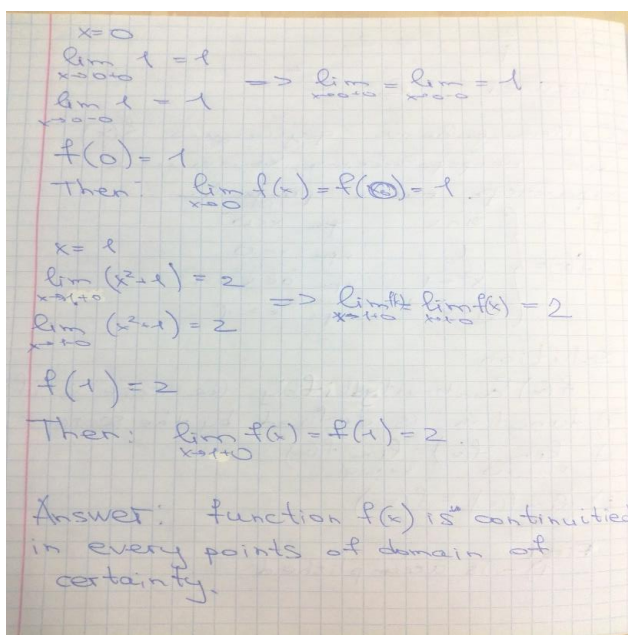 x=0
lim x→0+0 1 = 1
lim x→0-0 1 = 1
=> lim x→0+0 = lim x→0-0 = 1.
f(0) = 1
Then: lim x→0 f(x) = f(0) = 1.
x= 1
lim x→1+0 (x²+1) = 2
lim x→1-0 (x²+1) = 2
=> lim x→1+0 f(x) = lim x→1-0 f(x) = 2
f(1) = 2
Then: lim x→1+0 f(x) = f(1) = 2.
Answer: function f(x) is continuitied
in every points of domain of
certainty.